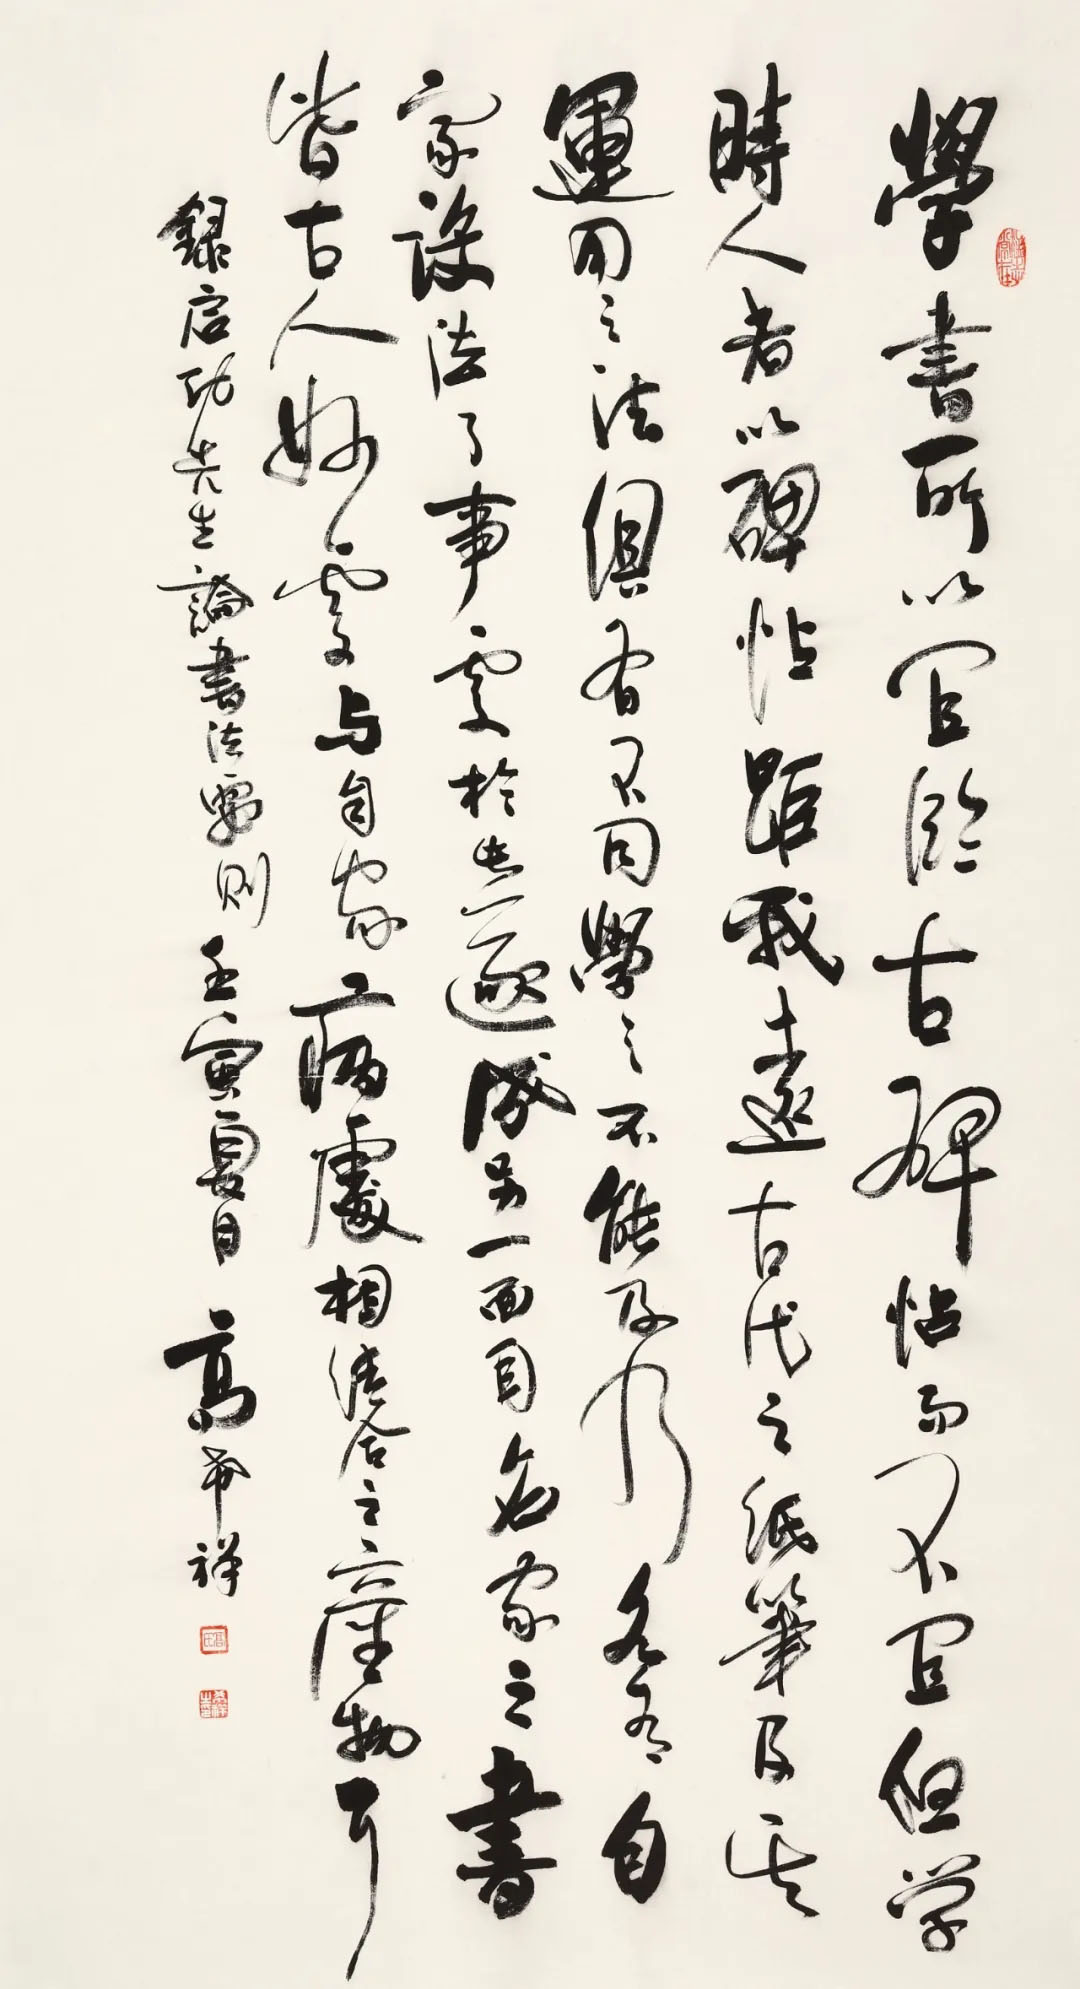 學書所以宜臨古碑帖而不宜但学
時人者以碑帖距我遠古代之紙筆及其
運用之法俱有不同學之不能及乃各有自
家設法了事處於此遂成另一面目名家之書
皆古人妙處与自家病處相結合之產物耳
録启功先生論書法要則壬寅夏日高希祥